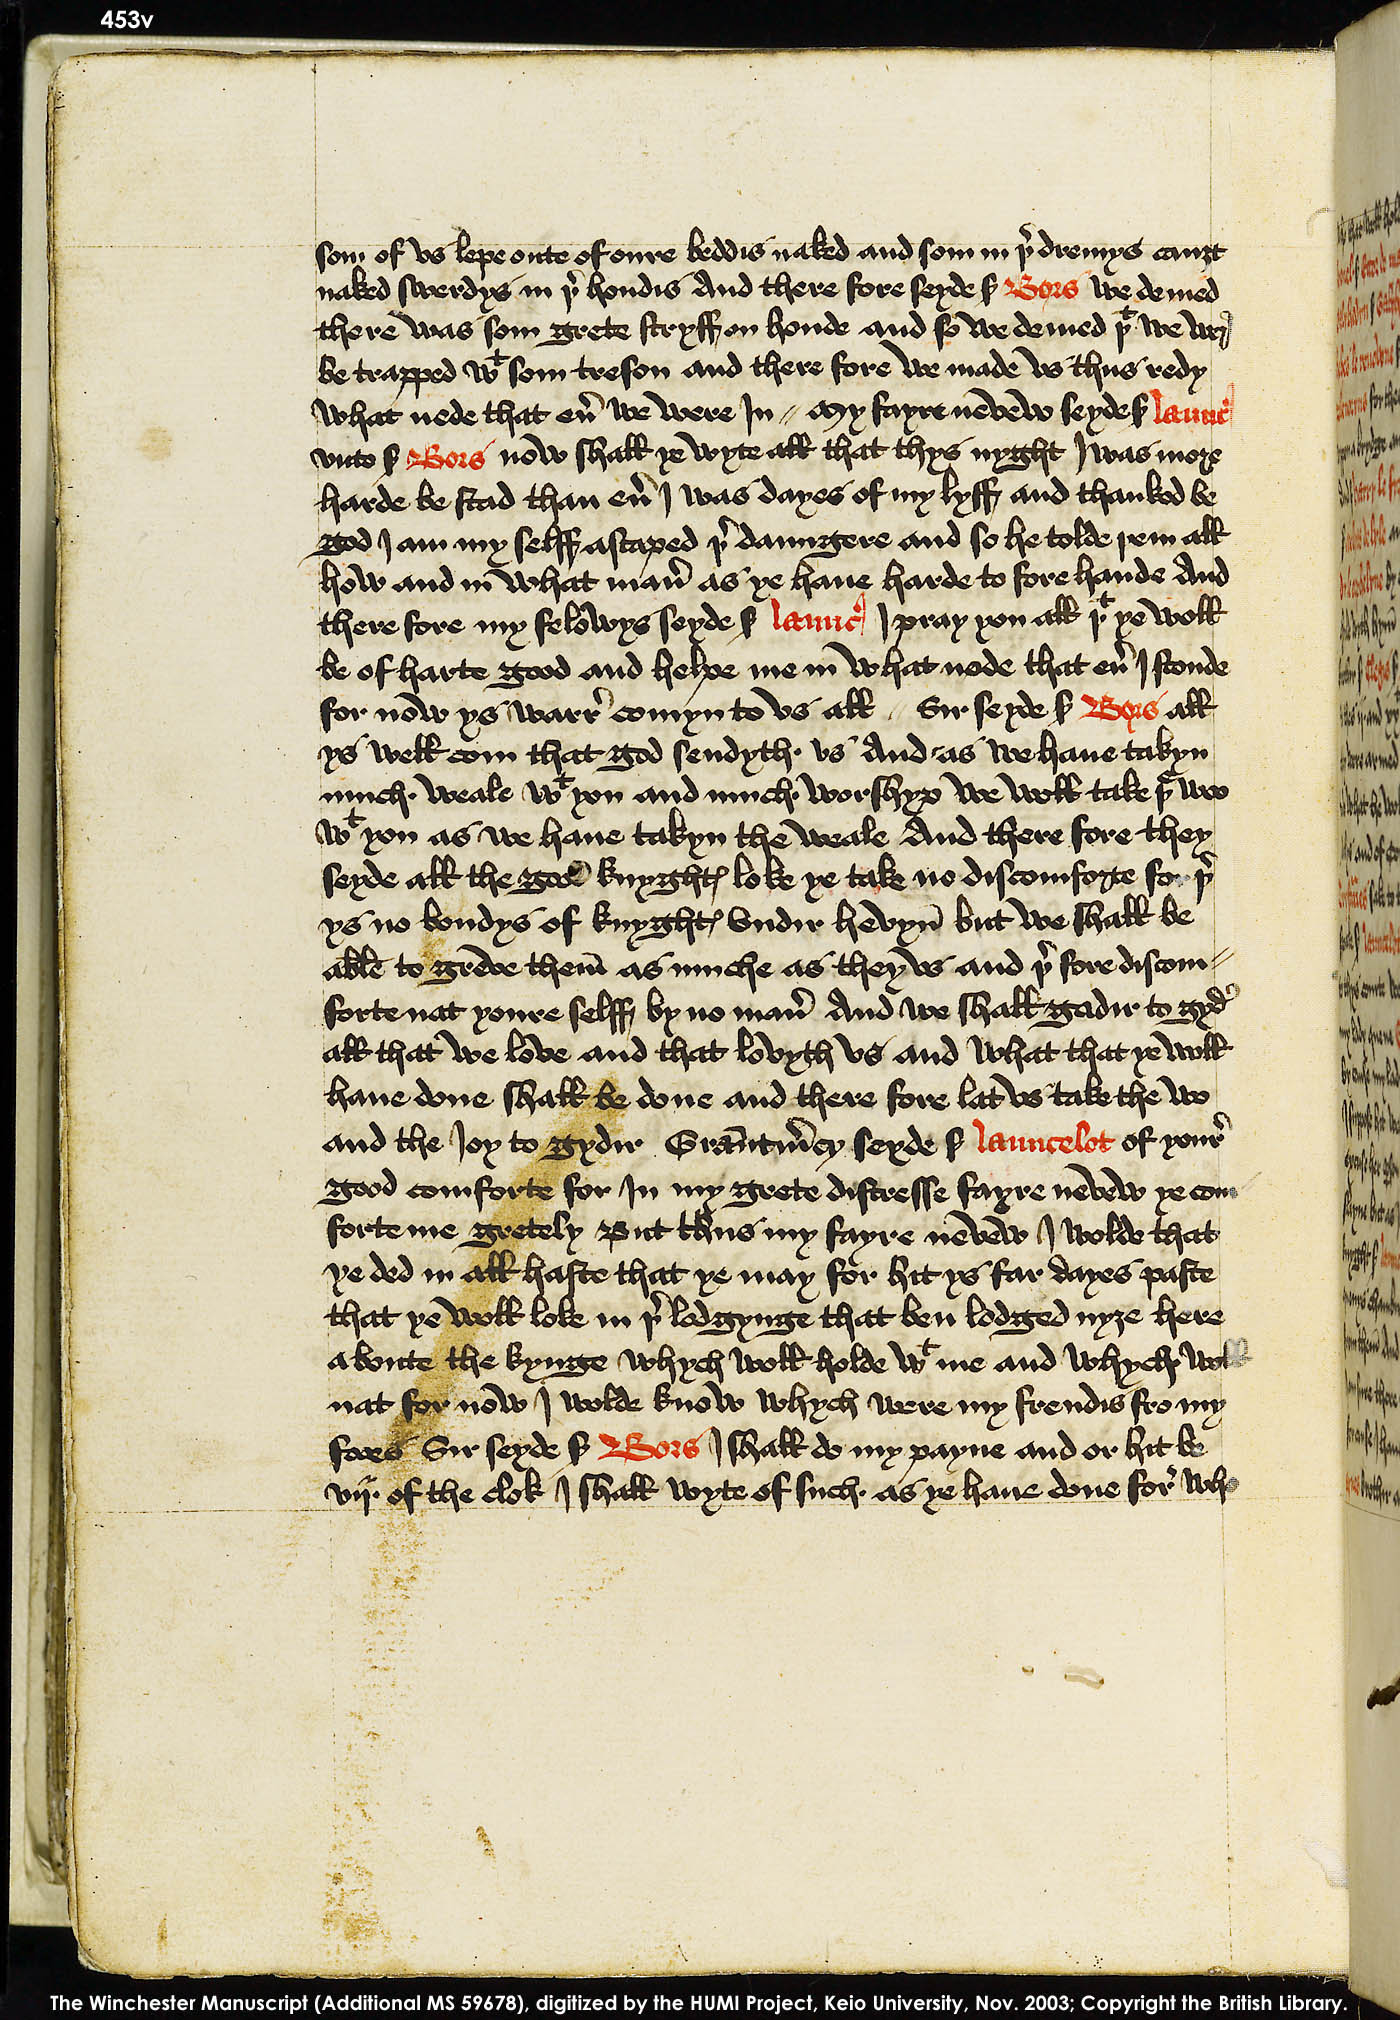 453v
som of vs lepe oute of oure beddis naked and som in þr dremys cauzt
naked swerdys in þr hondis And there fore seyde sr Bors we demed
there was som grete stryff on honde and so we demed þt we wer
be trapped wt som treson and there fore we made vs thus redy
what nede that eur we were In // My fayre nevew seyde sr launcr
vnto sr Bors now shall ye wyte all that thys nyght I was more
harde be stad than eur I was dayes of my lyff and thanked be
god I am my selff ascaped þr daungere and so he tolde þem all
how and in what manr as ye haue harde to fore hande And
there fore my felowys seyde sr launcr I pray you all þt ye woll
be of harte good and helpe me in what nede that eur I stonde
for now ys warr comyn to vs all // Sir seyde sr Bors all
ys well com that god sendyth vs And as we haue takyn
much weale wt you and much worshyp we woll take þe woo
wt you as we haue takyn the weale And there fore they
seyde all the good knyghtes loke ye take no discomforte for þr
ys no bondys of knyghtes vndir hevyn but we shall be
able to greve them as muche as they vs and þr fore discom//
forte nat youre selff by no manr And we shall gadir to gydr
all that we love and that lovyth vs and what that ye woll
haue done shall be done and there fore lat vs take the wo
and the Joy to gydir Grauntmrcy seyde sr launcelot of your
good comforte for In my grete distresse fayre nevew ye com
forte me gretely But thus my fayre nevew I wolde that
ye ded in all haste that ye may for hit ys far dayes paste
that ye woll loke in þr lodgynge that ben lodged nyze here
aboute the kynge whych woll holde wt me and whych woll
nat for now I wolde know whych were my frendis fro my
fooes Sir seyde sr Bors I shall do my payne and or hit be
vij of the clok I shall wyte of such as ye haue done for who
The Winchester Manuscript (Additional MS 59678), digitized by the HUMI Project, Keio University, Nov. 2003; Copyright the British Library.